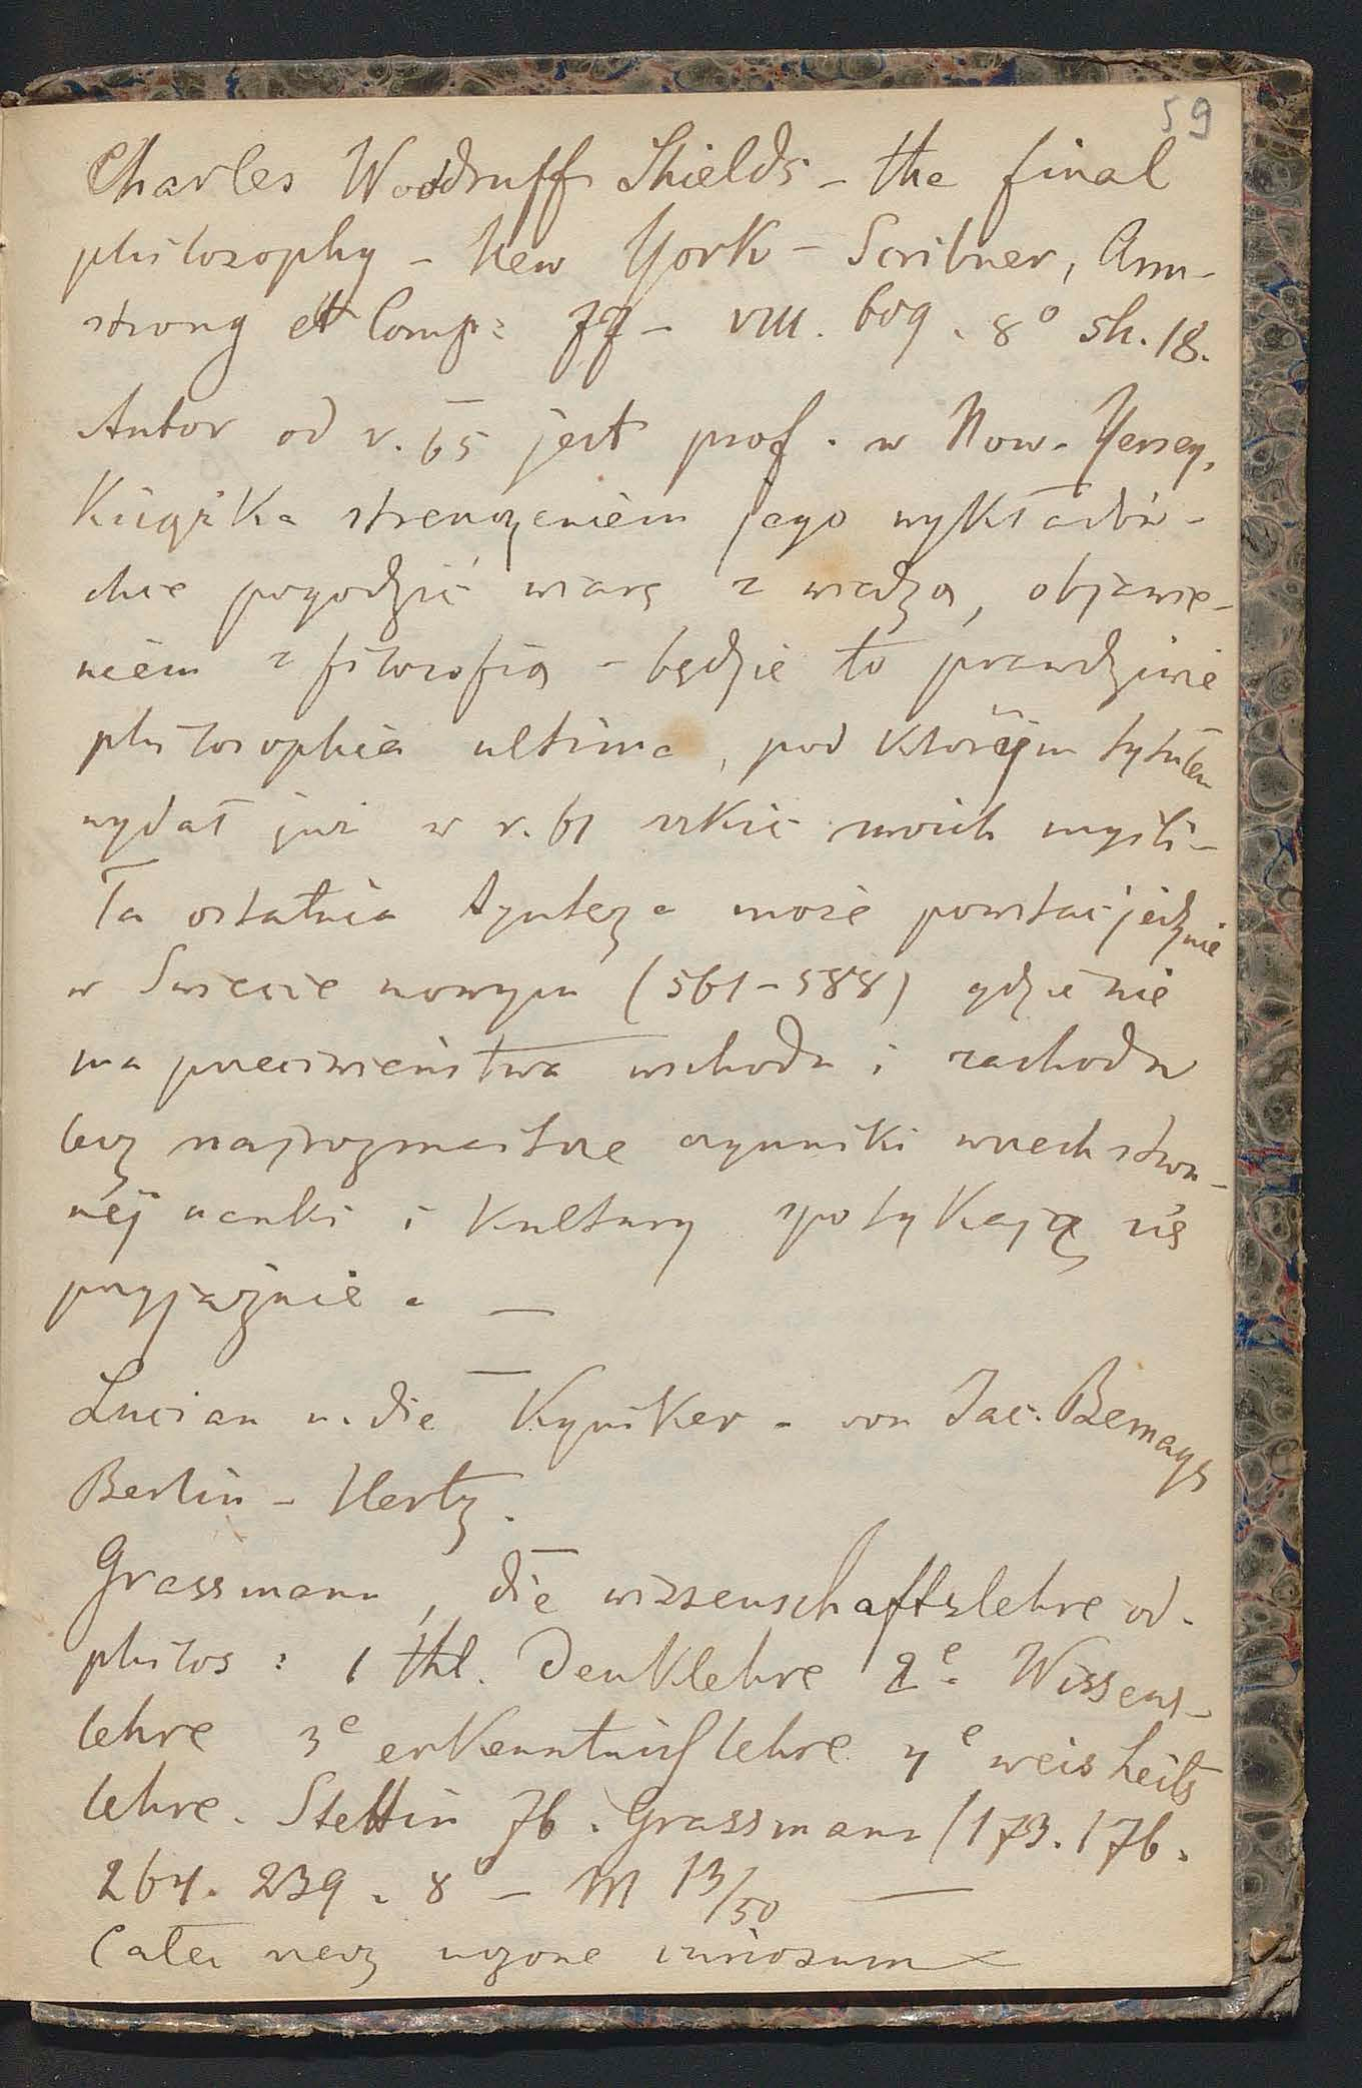 59
Charles Woodruff Shields – the final
philosophy – New York – Scribner, Arm-
strong et Comp: 77 – VIII. 609. 8° sh. 18.
Autor od r. 65 jest prof. w Now-Yersey,
Książka streszczeniem jego wykładów –
chce pogodzić wiarę z wiedzą, objawie-
niem z filozofią – będzie to prawdziwie
philosophia ultima, pod którym tytułem
wydał już w r. 61 szkic swoich myśli –
Ta ostatnia synteza może powstać jedynie
w Swiecie nowym (561–588) gdzie nie
ma przeciwieństwa wschodu i zachodu
lecz najrozmaitsze czynniki wszechstron-
nej nauki i Kultury spotykają się
przyjaźnie. —
Lucian u. die Kyniker – von Jac. Bernays
Berlin – Hertz.
Grassmann, die wissenschaftslehre od.
philos: 1 thl. Denklehre 2e. Wissens-
lehre 3e erkenntnißlehre 4e weisheits
lehre. Stettin 76. Grassmann (173. 176.
264. 239. 8° – M 13/50 —
Cała rzecz uczone curiosum